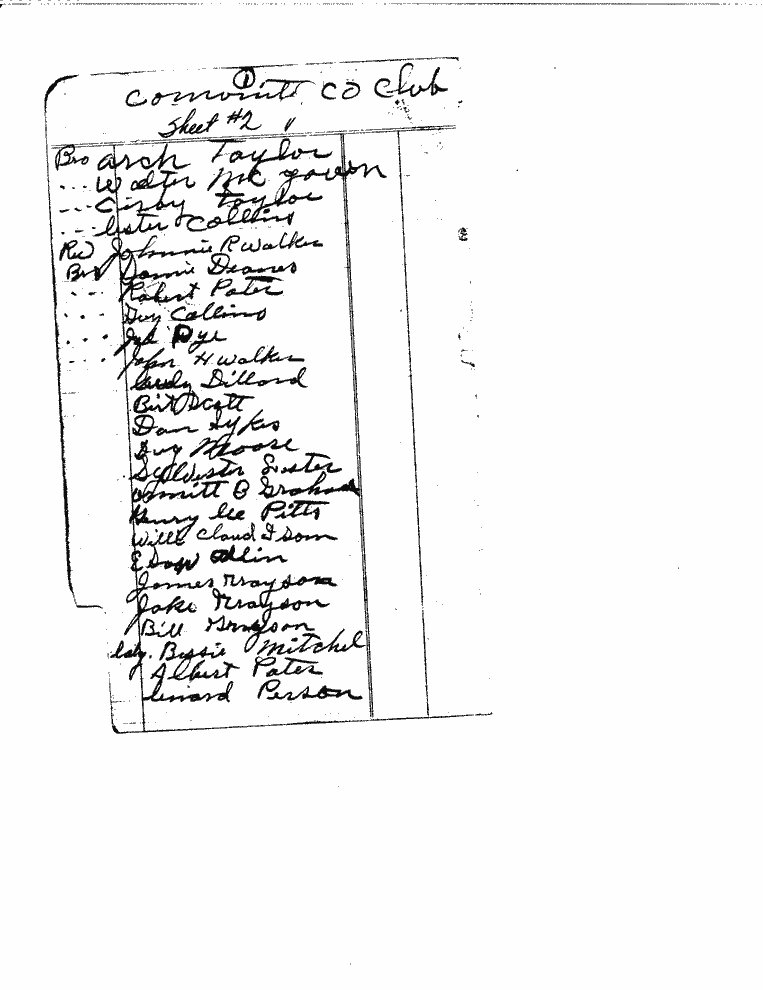 ①
Comonite CO Club
Sheet #2
Bro Arch Taylor
... Walter Mc govern
... Taylor
... lester Collins
Rev Johnnie R Walker
Bro Donnie
... Robert Pates
... Guy Collins
... Dye
... John H Walker
Dillard
Birt Scott
Dan Sykes
Guy Moose
Sylvester
B Graham
Henry lee Pitts
Will Claud
E
James Grayson
Jake Grayson
Bill Grayson
lady. Bessie Mitchel
Albert Pates
lenard Person